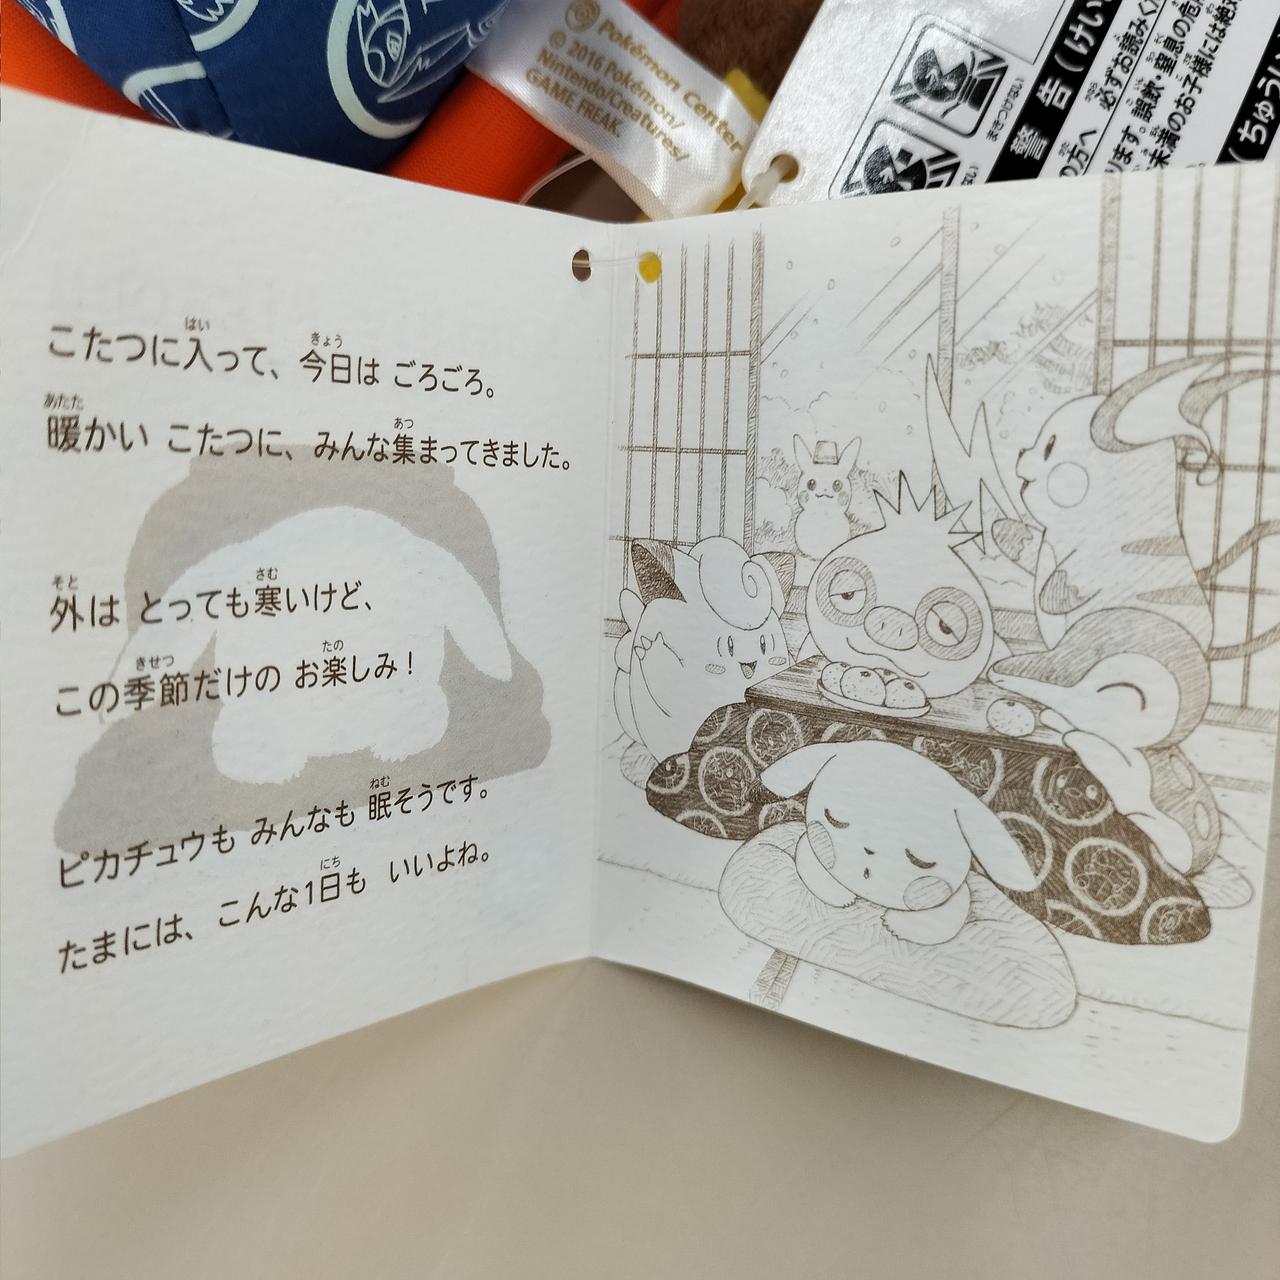 Pokémon Center
© 2016 Pokémon/
Nintendo/Creatures/
GAME FREAK.
まきつけない
警 告 (けい
の方へ 必ずお読みく
ります。誤飲・窒息の危
未満のお子様には絶
(ちゅうい
こたつに入って、今日は ごろごろ。
はい きょう
暖かい こたつに、みんな集まってきました。
あたた あつ
外は とっても寒いけど、
そと さむ
この季節だけの お楽しみ！
きせつ たの
ピカチュウも みんなも 眠そうです。
ねむ
たまには、こんな1日も いいよね。
にち